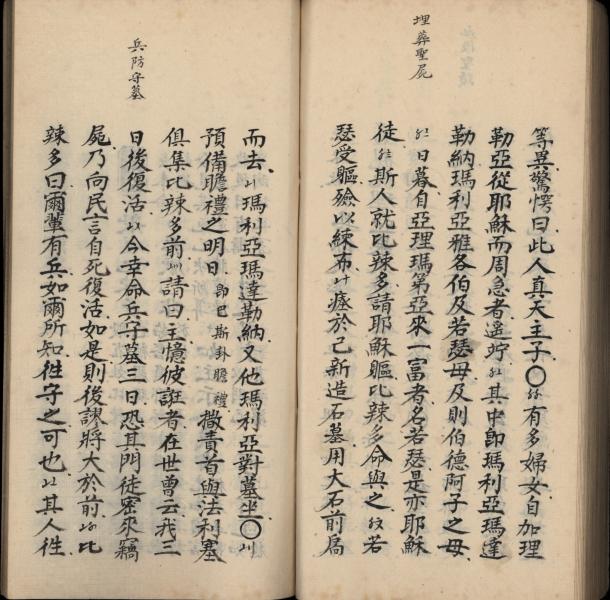 埋葬聖屍
等異驚愕曰此人真天主子〇有多婦女自加理
勒亞從耶穌而周急者遥竚其中即瑪利亞瑪達
勒納瑪利亞雅各伯及若瑟母及則伯德阿子之母
日暮自亞理瑪第亞來一富者名若瑟是亦耶穌
徒斯人就比辣多請耶穌軀比辣多命與之若
瑟受軀殮以練布瘞於己新造石墓用大石前扃
兵防守墓
而去瑪利亞瑪達勒納又他瑪利亞對墓坐〇
預備瞻禮之明日即巴斯卦瞻禮撒責首與法利塞
俱集比辣多前請曰主憶彼誑者在世曾云我三
日後復活今幸命兵守墓三日恐其門徒密來竊
屍乃向民言自死復活如是則後謬將大於前比
辣多曰爾輩有兵如爾所知徃守之可也其人徃